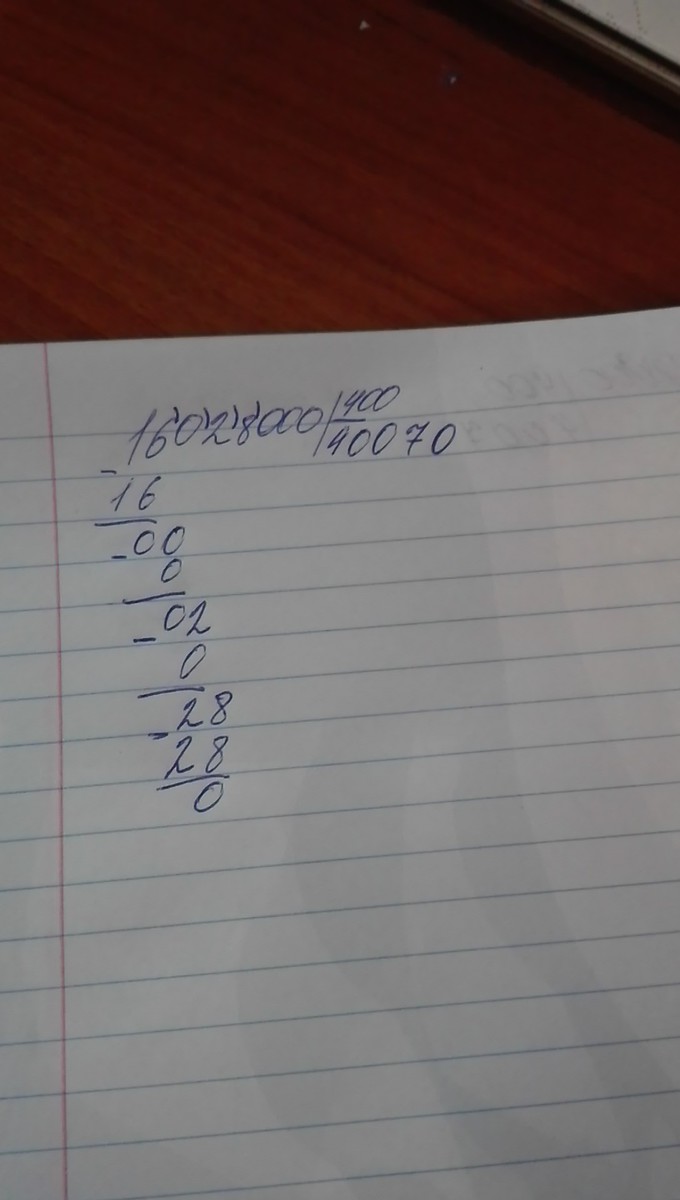 16028000|400
40070
-
16
-00
0
-02
0
-28
28
0